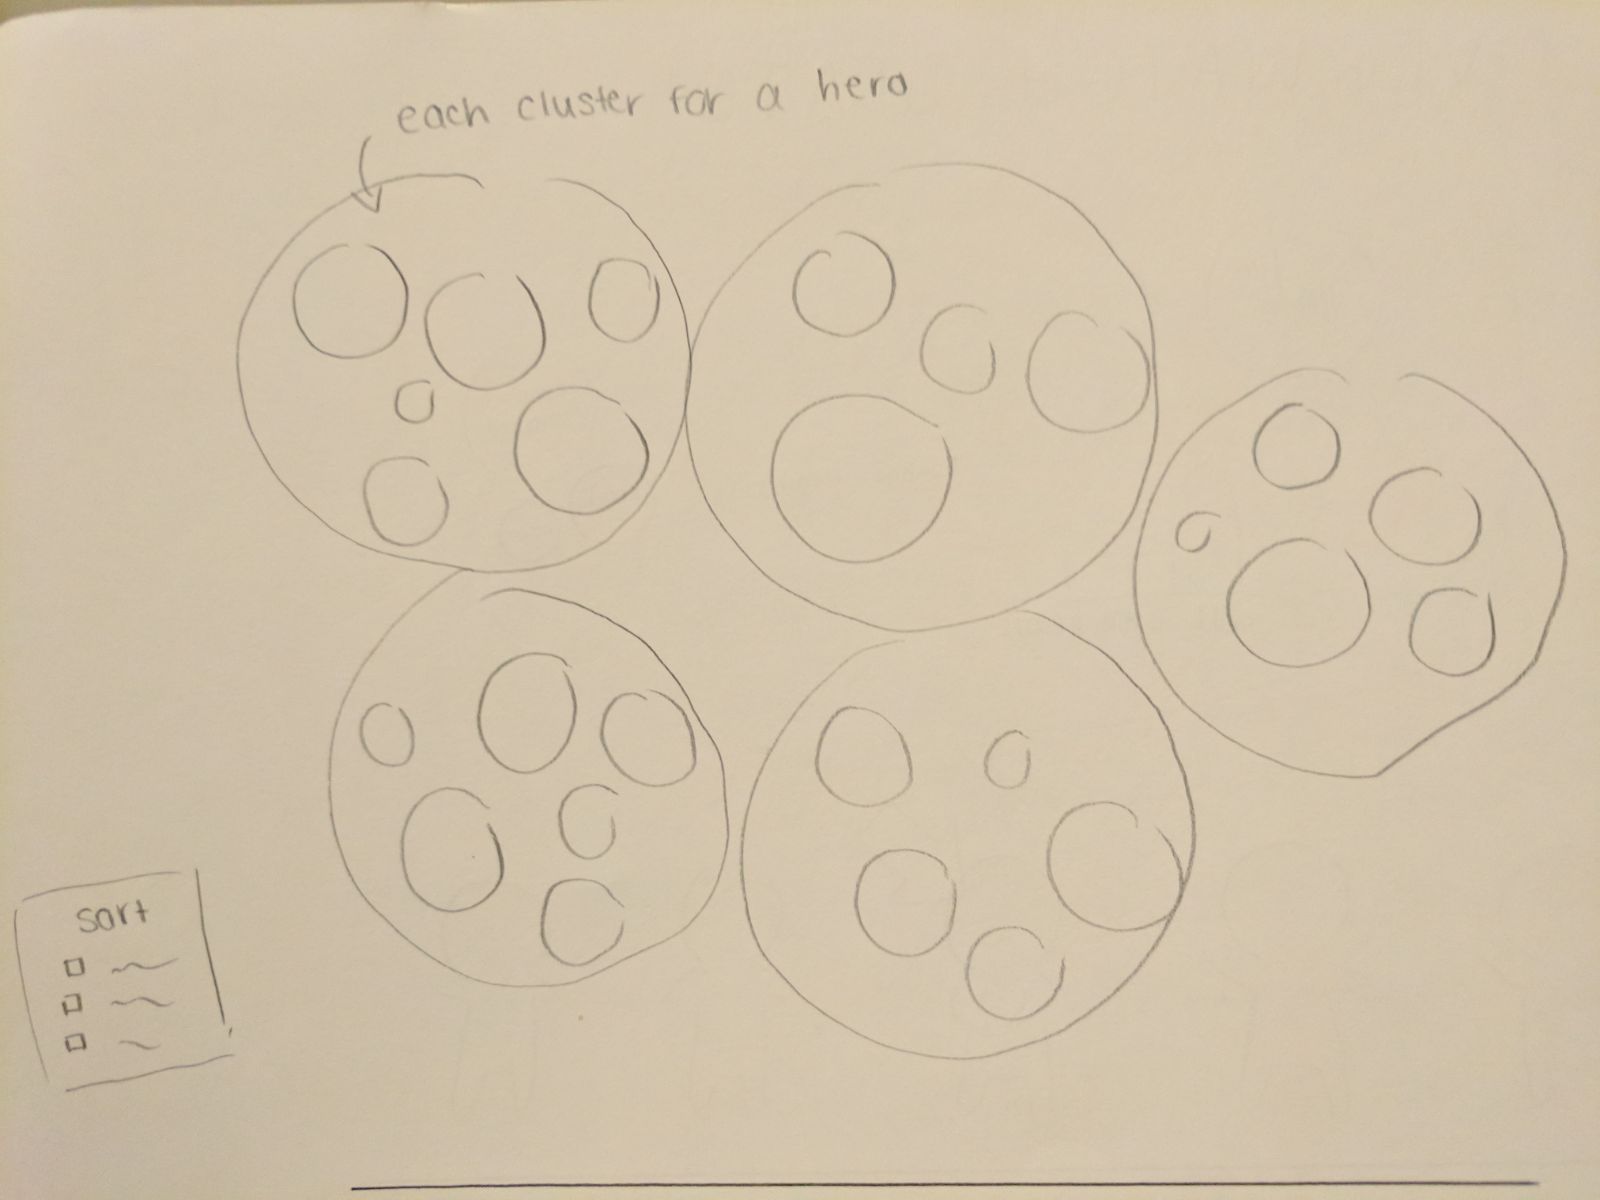 each cluster for a hero
sort